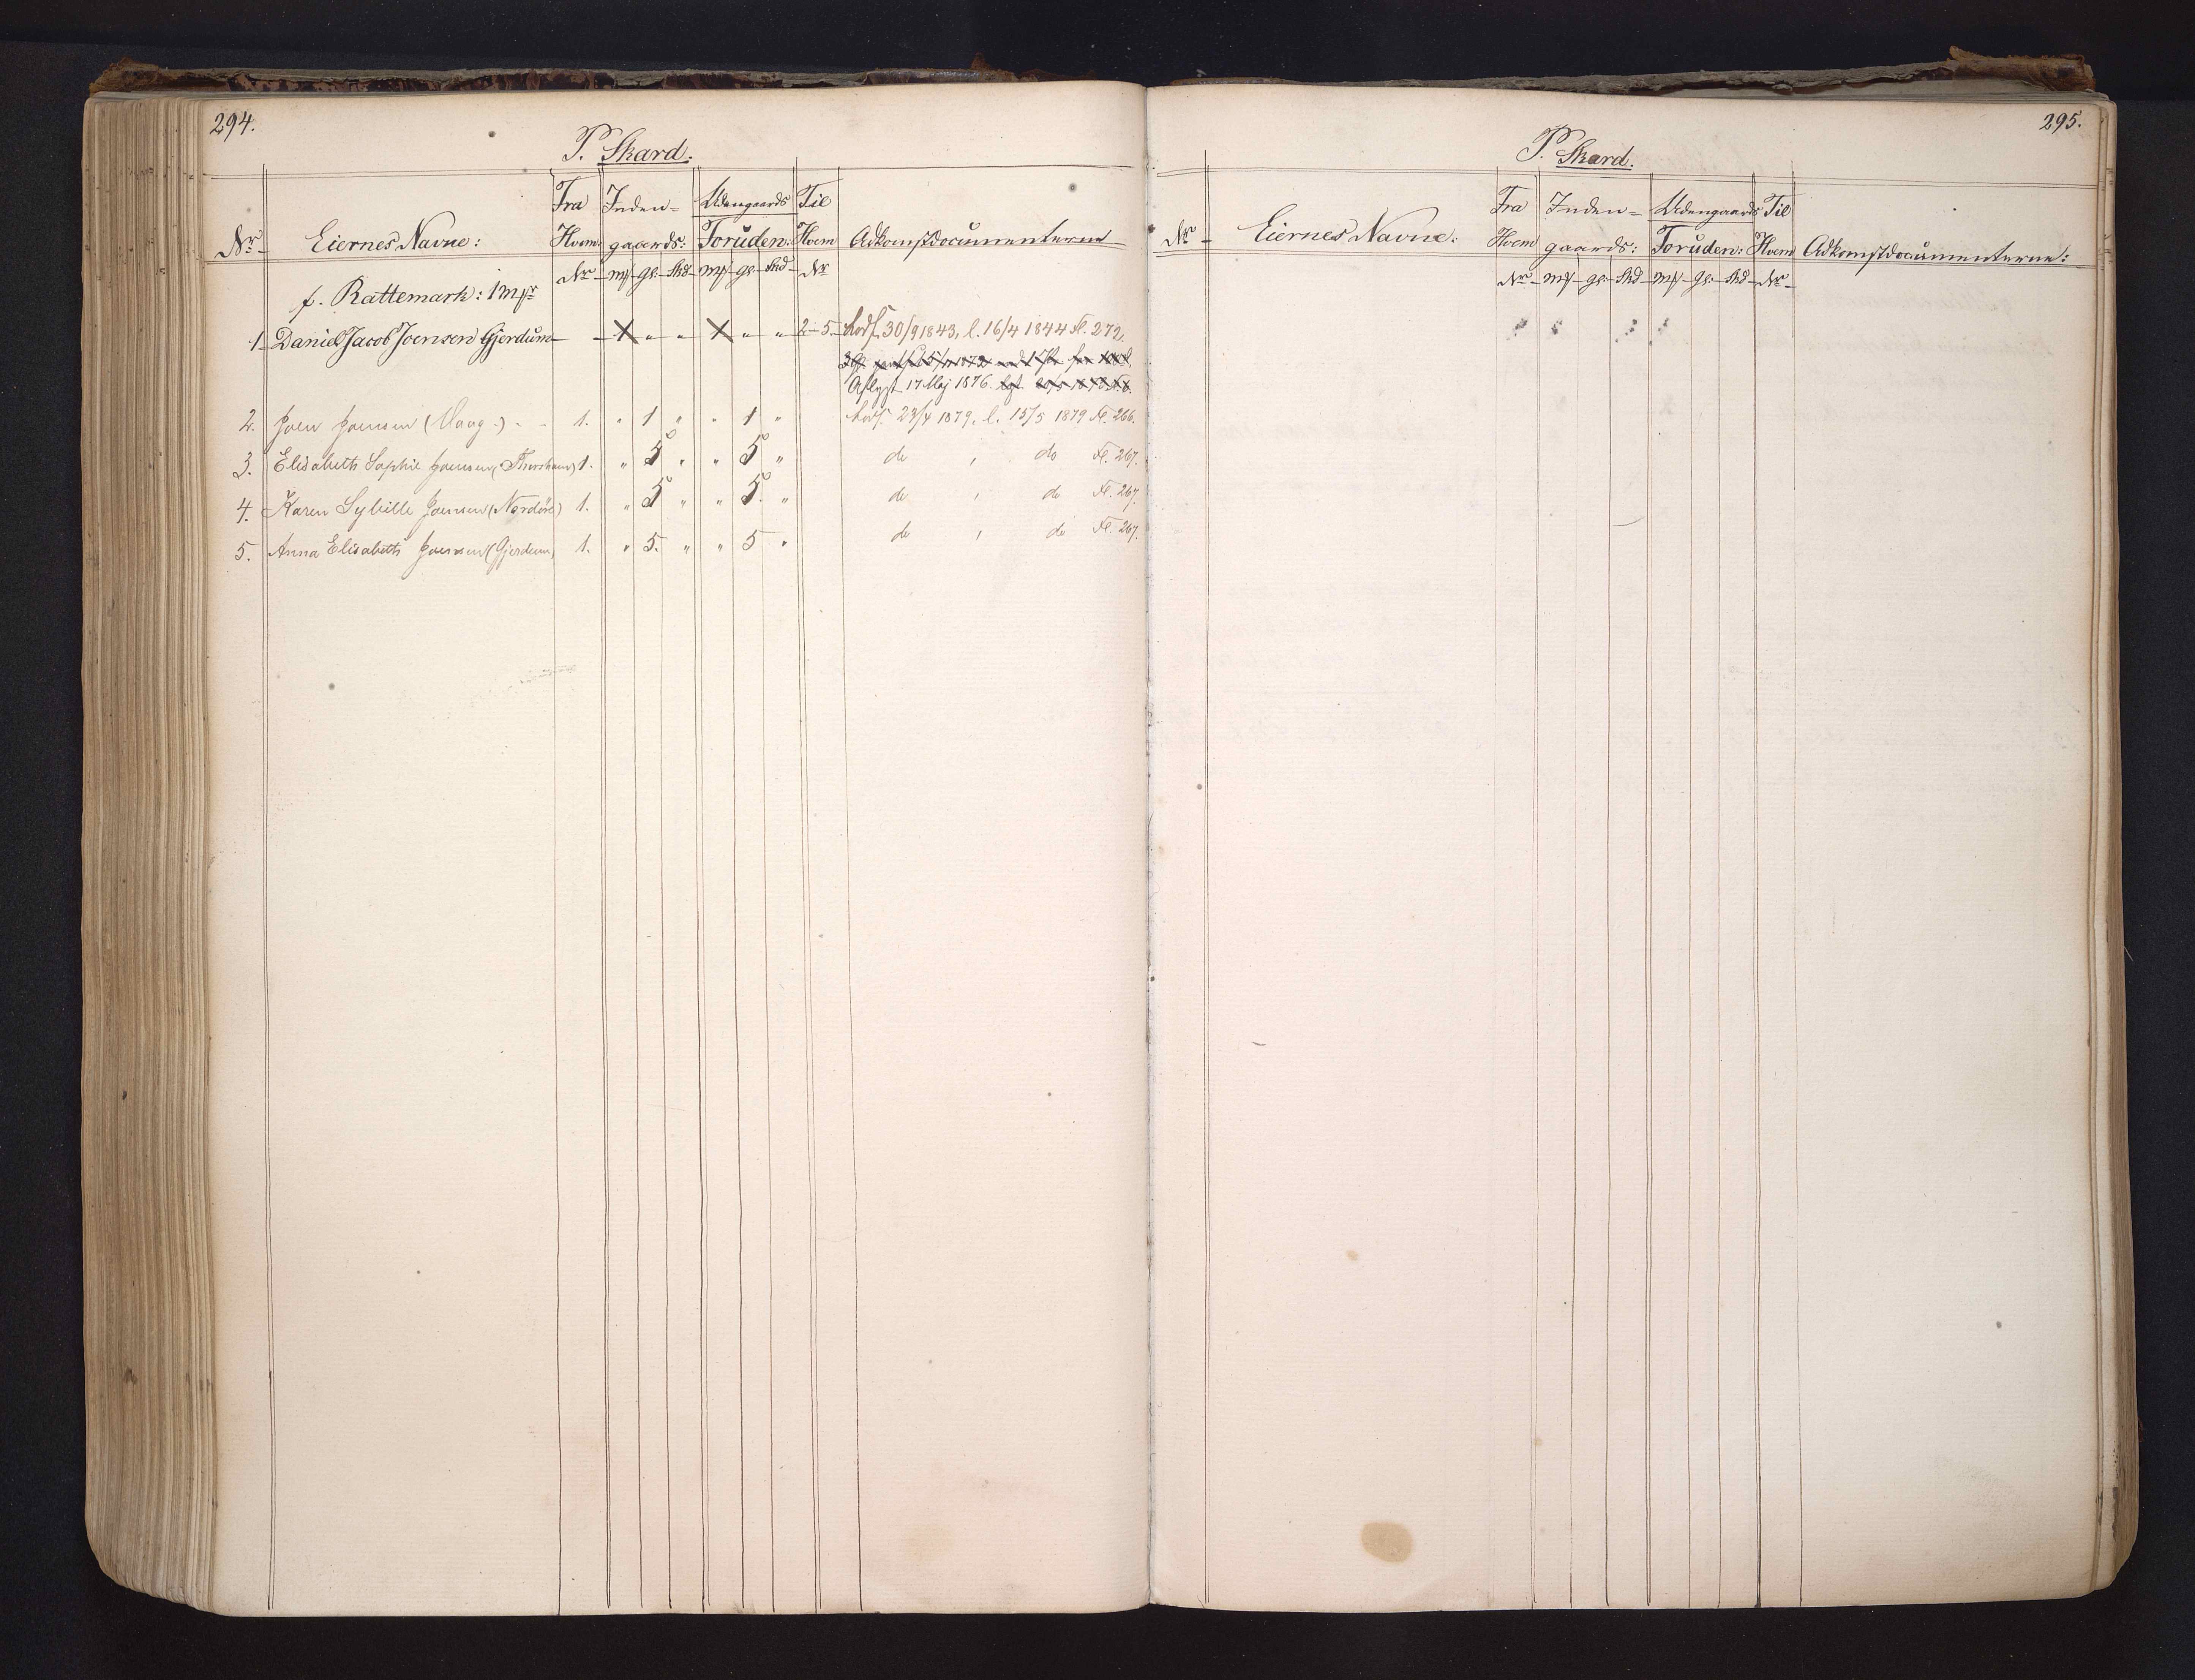 294.
P. Skard.
Nr Eiernes Navne: Fra Hvem: Inden-gaards: Udengaards Foruden: Til Hvem Adkomstdocumenterne
Nr mk gs. Skd mk gs. Skd Nr
f. Rattemark: 1 mk
1 Daniel Jacob Joensen Gjerdum — X " " X " " 2-5. 30/9 1843, l. 16/4 1844 Fl. 272.
Aflyst 17 Maj 1876.
2. Joen Joensen (Vaag) " " 1. " 1 " " 1 " 23/4 1879, l. 15/5 1879 Fl. 266.
3. Elisabeth Sophie Joensen (Thorshavn) 1. " 5 " " 5 " do , do Fl. 267.
4. Karen Sybille Joensen (Nordøre) 1. " 5 " " 5. " do , do Fl. 267.
5. Anna Elisabeth Joensen (Gjerdum) 1. " 5. " " 5 " do , do Fl. 267.
295.
P. Skard.
Nr Eiernes Navne: Fra Hvem Inden-gaards: Udengaards Foruden: Til Hvem Adkomstdocumenterne:
Nr mk gs. Skd mk gs. Skd Nr